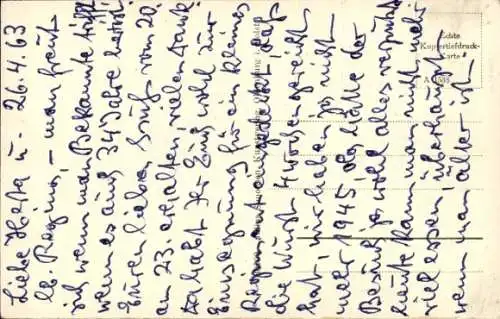 Liebe Herta u. 26.4.63
lb. Regina, – man freut
sich wenn man Bekannte trifft
wenn es auch 34 Jahre
Euren lieben Brief vom 20.
am 23. erhalten, vielen Dank
Ihr habt Ihr Eins wohl zur
Einsegnung für ein kleines
daß
die Wurst 4 Wochen gereicht
hat, wir haben ja nicht
mehr 1945 da hätte der
Besuch ja wohl alles verputzt
heute kann man nicht mehr
viel essen, überhaupt
wenn man älter ist.
Echte
Kupfertiefdruck-
Karte